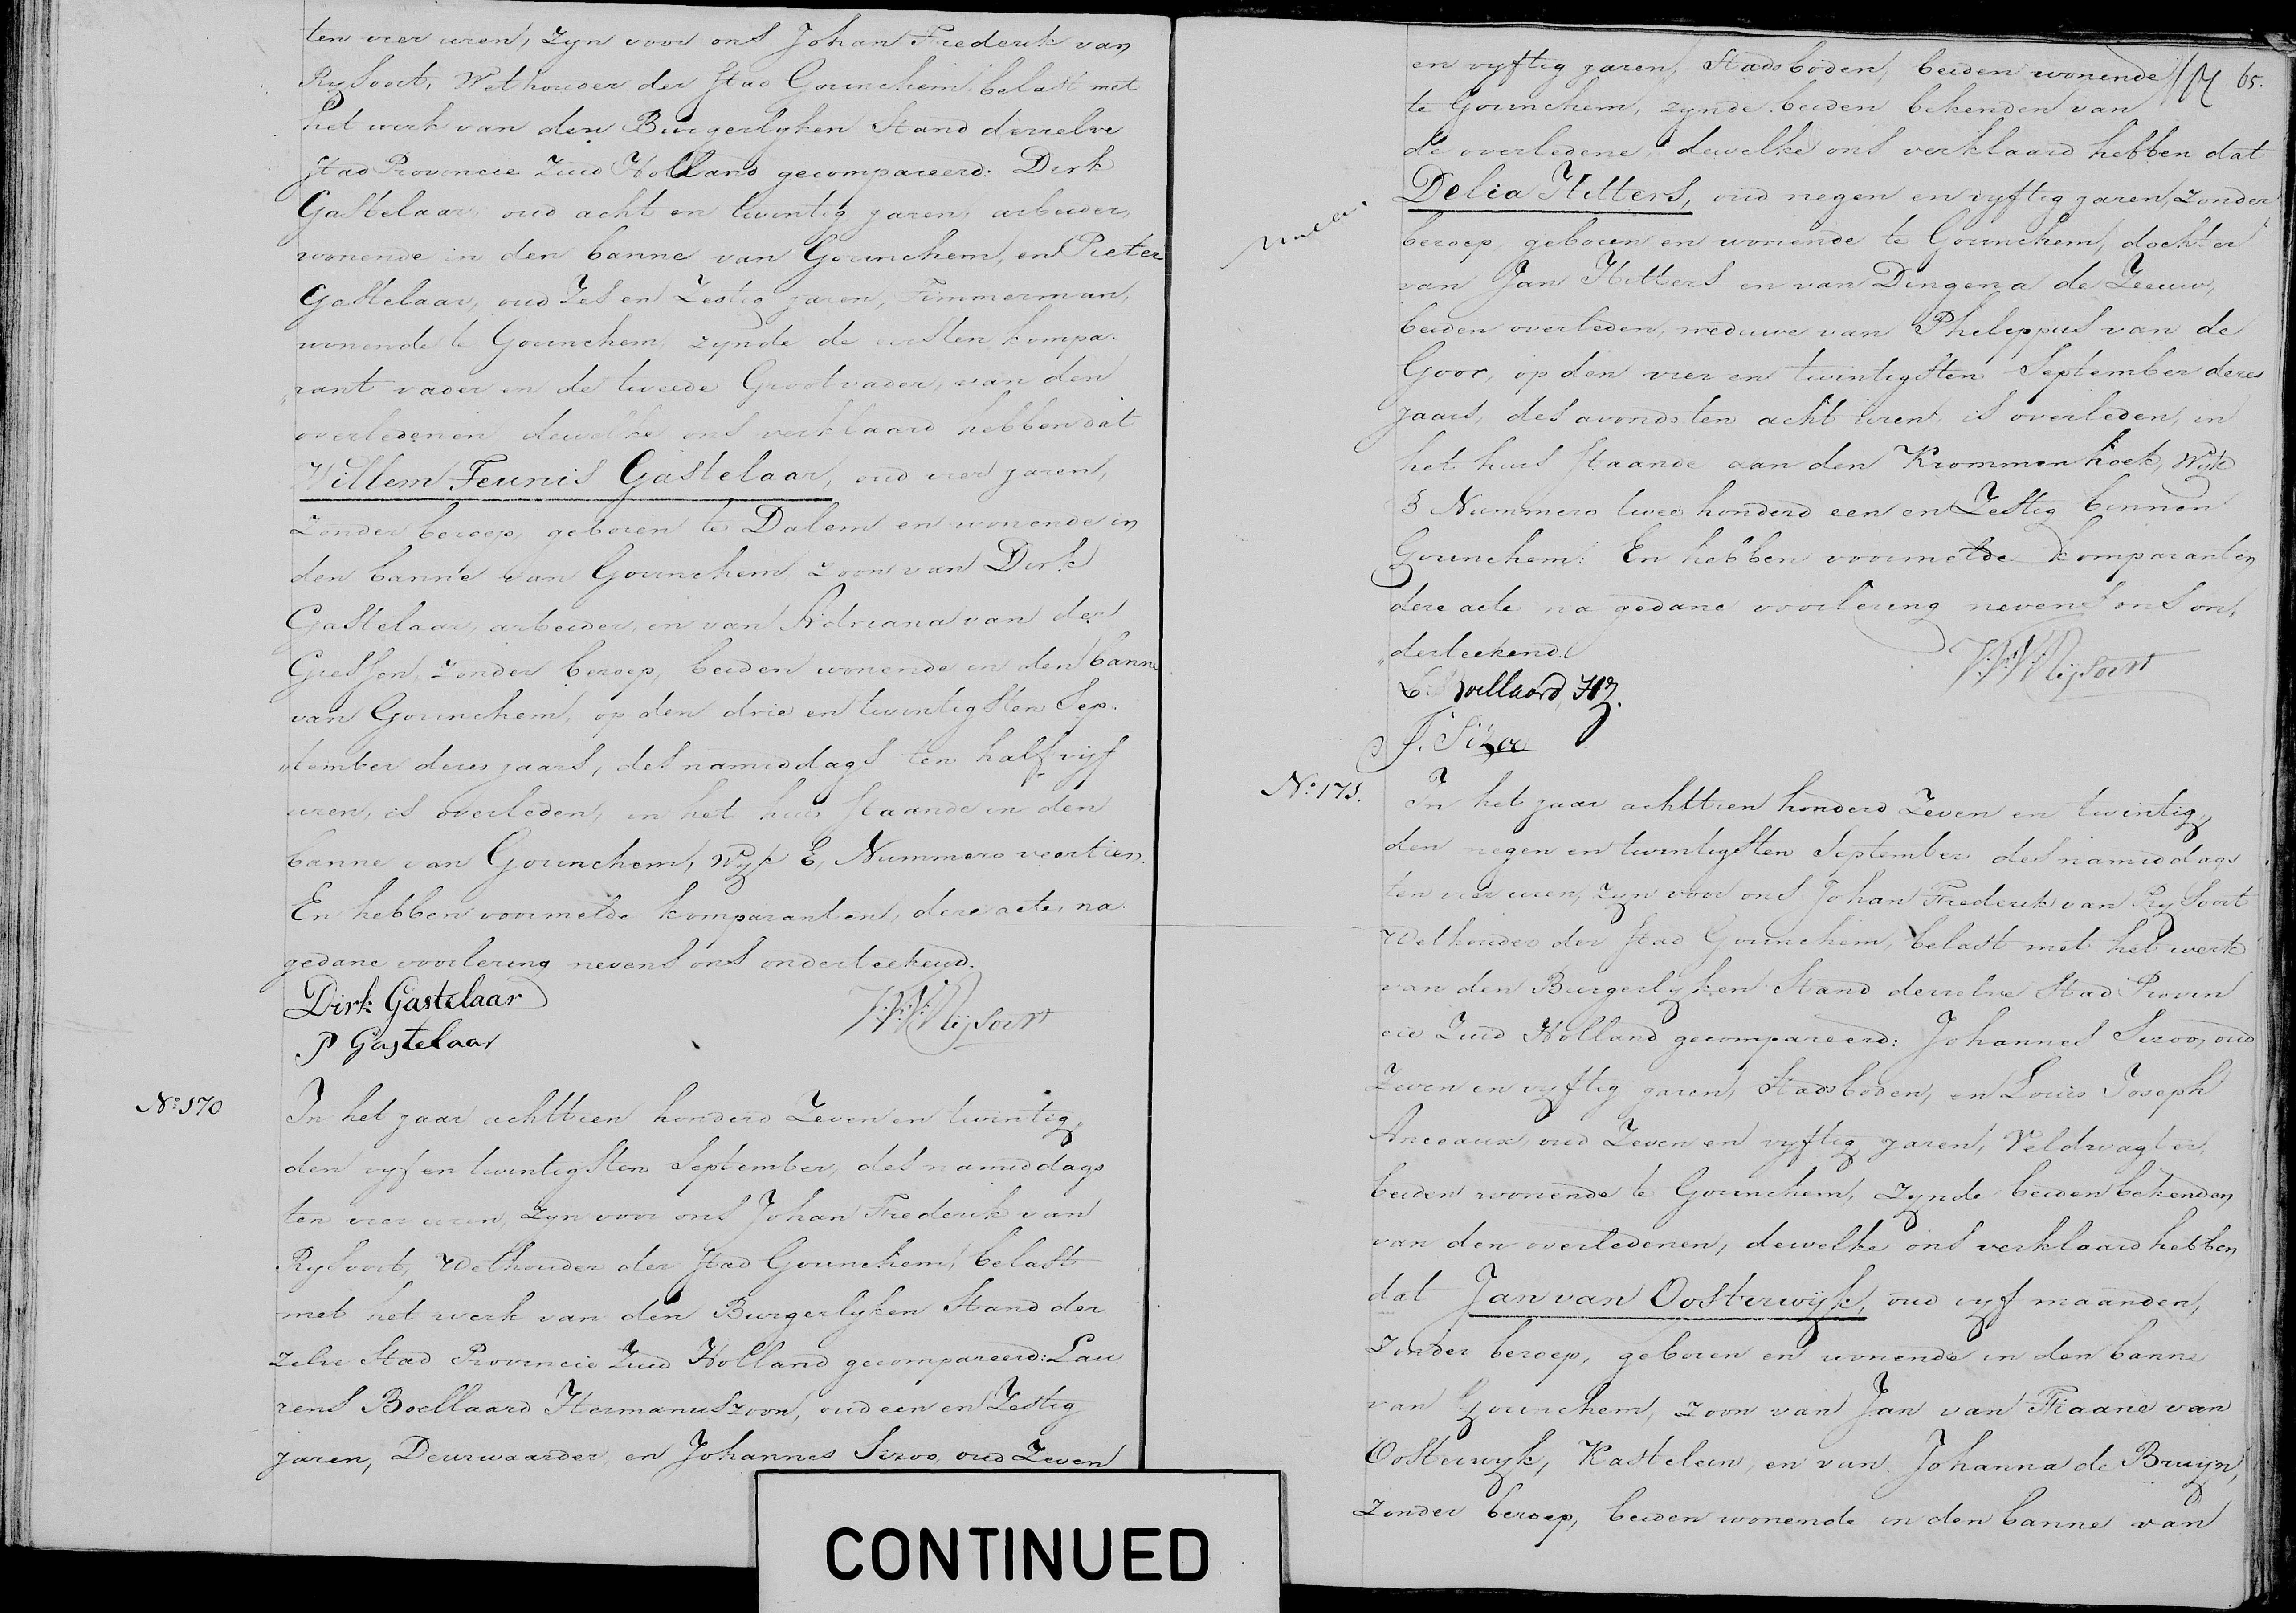 ten vier uren, zyn voor ons Johan Frederik van
Rysoort, Wethouder der Stad Gorinchem, belast met
het werk van den Burgerlyken Stand derzelve
Stad Provincie Zuid Holland gecompareerd: Dirk
Gastelaar, oud acht en twintig jaren, arbeider,
wonende in den banne van Gorinchem, en Pieter
Gastelaar, oud Zes en Zestig jaren, Timmerman,
wonende te Gorinchem zynde de eersten kompa-
„rant vader en de tweede Grootvader, van den
overledenen dewelke ons verklaard hebben dat
Willem Teunis Gastelaar, oud vier jaren,
zonder beroep, geboren te Dalem en wonende in
den banne van Gorinchem, zoon van Dirk
Gastelaar, arbeider, en van Adriana van der
Giessen, zonder beroep, beiden wonende in den banne
van Gorinchem, op den drie en twintigsten Sep-
„tember dezes jaars, des namiddags ten half vyf
uren, is overleden, in het huis staande in den
banne van Gorinchem, Wyk E, Nummero veertien.
En hebben voormelde komparanten, deze acte, na
gedane voorlezing nevens ons onderteekend.
Dirk Gastelaar
P Gastelaar
J:F:V: Rijsoort
No. 170
In het jaar achttien honderd Zeven en twintig,
den vyf en twintigsten September, des namiddags
ten vier uren, zyn voor ons Johan Frederik van
Rysoort, Wethouder der Stad Gorinchem, belast
met het werk van den Burgerlyken Stand der
zelve Stad Provincie Zuid Holland gecompareerd: Lau
rens Boellaard Hermanuszoon, oud een en Zestig
jaren, Deurwaarder, en Johannes Sizoo, oud Zeven
CONTINUED
65.
en vyftig jaren, Stadsboden, beiden wonende
te Gorinchem, zynde beiden bekenden van
de overledene, dewelke ons verklaard hebben dat
Delia Hitters, oud negen en vyftig jaren, zonder
beroep, geboren en wonende te Gorinchem, dochter
van Jan Hitters en van Dingena de Zeeuw,
beiden overleden, weduwe van Philippus van de
Goor, op den vier en twintigsten September dezes
jaars, des avonds ten acht uren, is overleden, in
het huis staande aan den Krommenhoek, Wyk
B Nummero twee honderd een en Zestig binnen
Gorinchem. En hebben voormelde komparanten
deze acte na gedane voorlezing nevens ons on,
„derteekend.
J:F:V: Rijsoort
L. Boellaard, Hz.
J. Sizoo
No. 171.
In het jaar achttien honderd Zeven en twintig,
den negen en twintigsten September des namiddags
ten vier uren, zyn voor ons Johan Frederik van Rysoort
Wethouder der Stad Gorinchem, belast met het werk
van den Burgerlyken Stand derzelve Stad Provin
cie Zuid Holland gecompareerd: Johannes Sizoo, oud
Zeven en vyftig jaren, Stadsboden, en Louis Joseph
Anceaux, oud Zeven en vyftig jaren, Veldwagter,
beiden wonende te Gorinchem, zynde beiden bekenden
van den overledenen, dewelke ons verklaard hebben
dat Jan van Oosterwijk, oud vyf maanden,
Zonder beroep, geboren en wonende in den banne
van Gorinchem, zoon van Jan van Tiaane van
Oosterwyk, Kastelein, en van Johanna de Bruijn,
zonder beroep, beiden wonende in den banne van